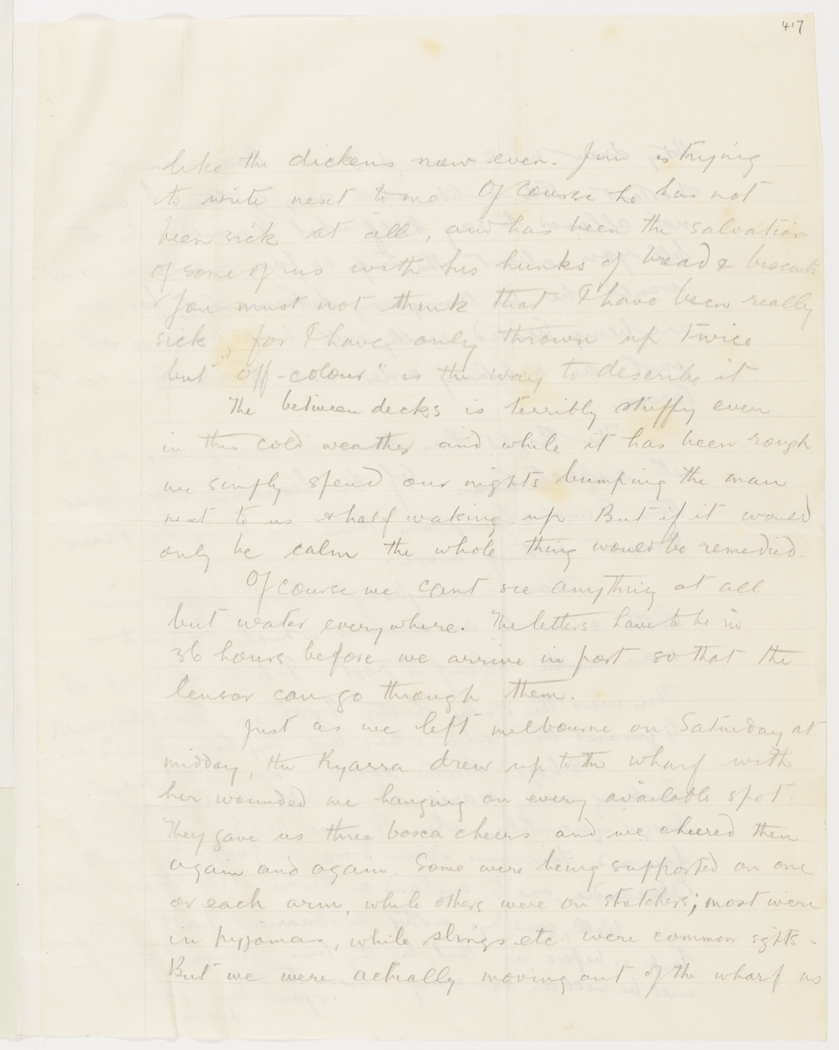 417
like the dickens now even. Jim is trying
to write next to me Of course he has not
been sick at all, and has been the salvation
of some of us with his hunks of bread & biscuits
You must not think that I have been really
sick, for I have only thrown up twice
but "off-colour" is the way to describe it
The between decks is terribly stuffy even
in this cold weather and while it has been rough
we simply spend our nights bumping the man
next to us & half waking up. But if it would
only be calm the whole thing would be remedied.
Of course we cant see anything at all
but water everywhere. The letters have to be in
36 hours before we arrive in port so that the
Censor can go through them.
Just as we left melbourne on Saturday at
midday, the Kyarra drew up to the wharf with
her wounded me hanging on every available spot
They gave us three bosca cheers and we cheered them
again and again. Some were being supported on one
or each arm, while others were on stretchers; most were
in pyjamas, while slings etc were common sights.
But we were actually moving out of the wharf as